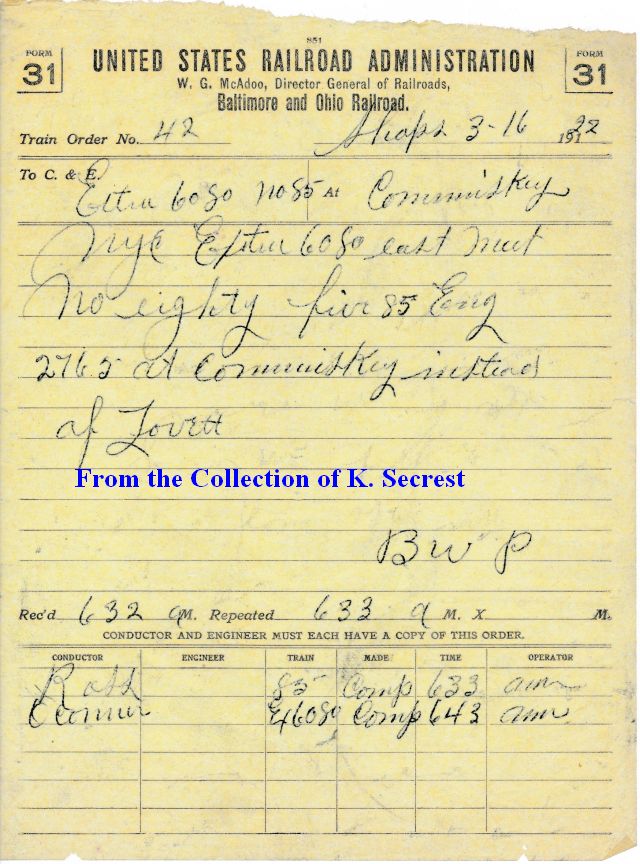 851
FORM 31
UNITED STATES RAILROAD ADMINISTRATION
FORM 31
W. G. McAdoo, Director General of Railroads,
Baltimore and Ohio Railroad.
Train Order No. 42 Shops 3-16 191 22
To C. & E. Extra 6080 No 85 At Commiskey
NYC Extra 6080 east meet
No eighty five 85 Eng
2765 at Commiskey instead
of Lovett
From the Collection of K. Secrest
B W P
Rec'd 632 a M. Repeated 633 a M. X M.
CONDUCTOR AND ENGINEER MUST EACH HAVE A COPY OF THIS ORDER.
CONDUCTOR ENGINEER TRAIN MADE TIME OPERATOR
85 Comp 633
O Conner X6080 Comp 643